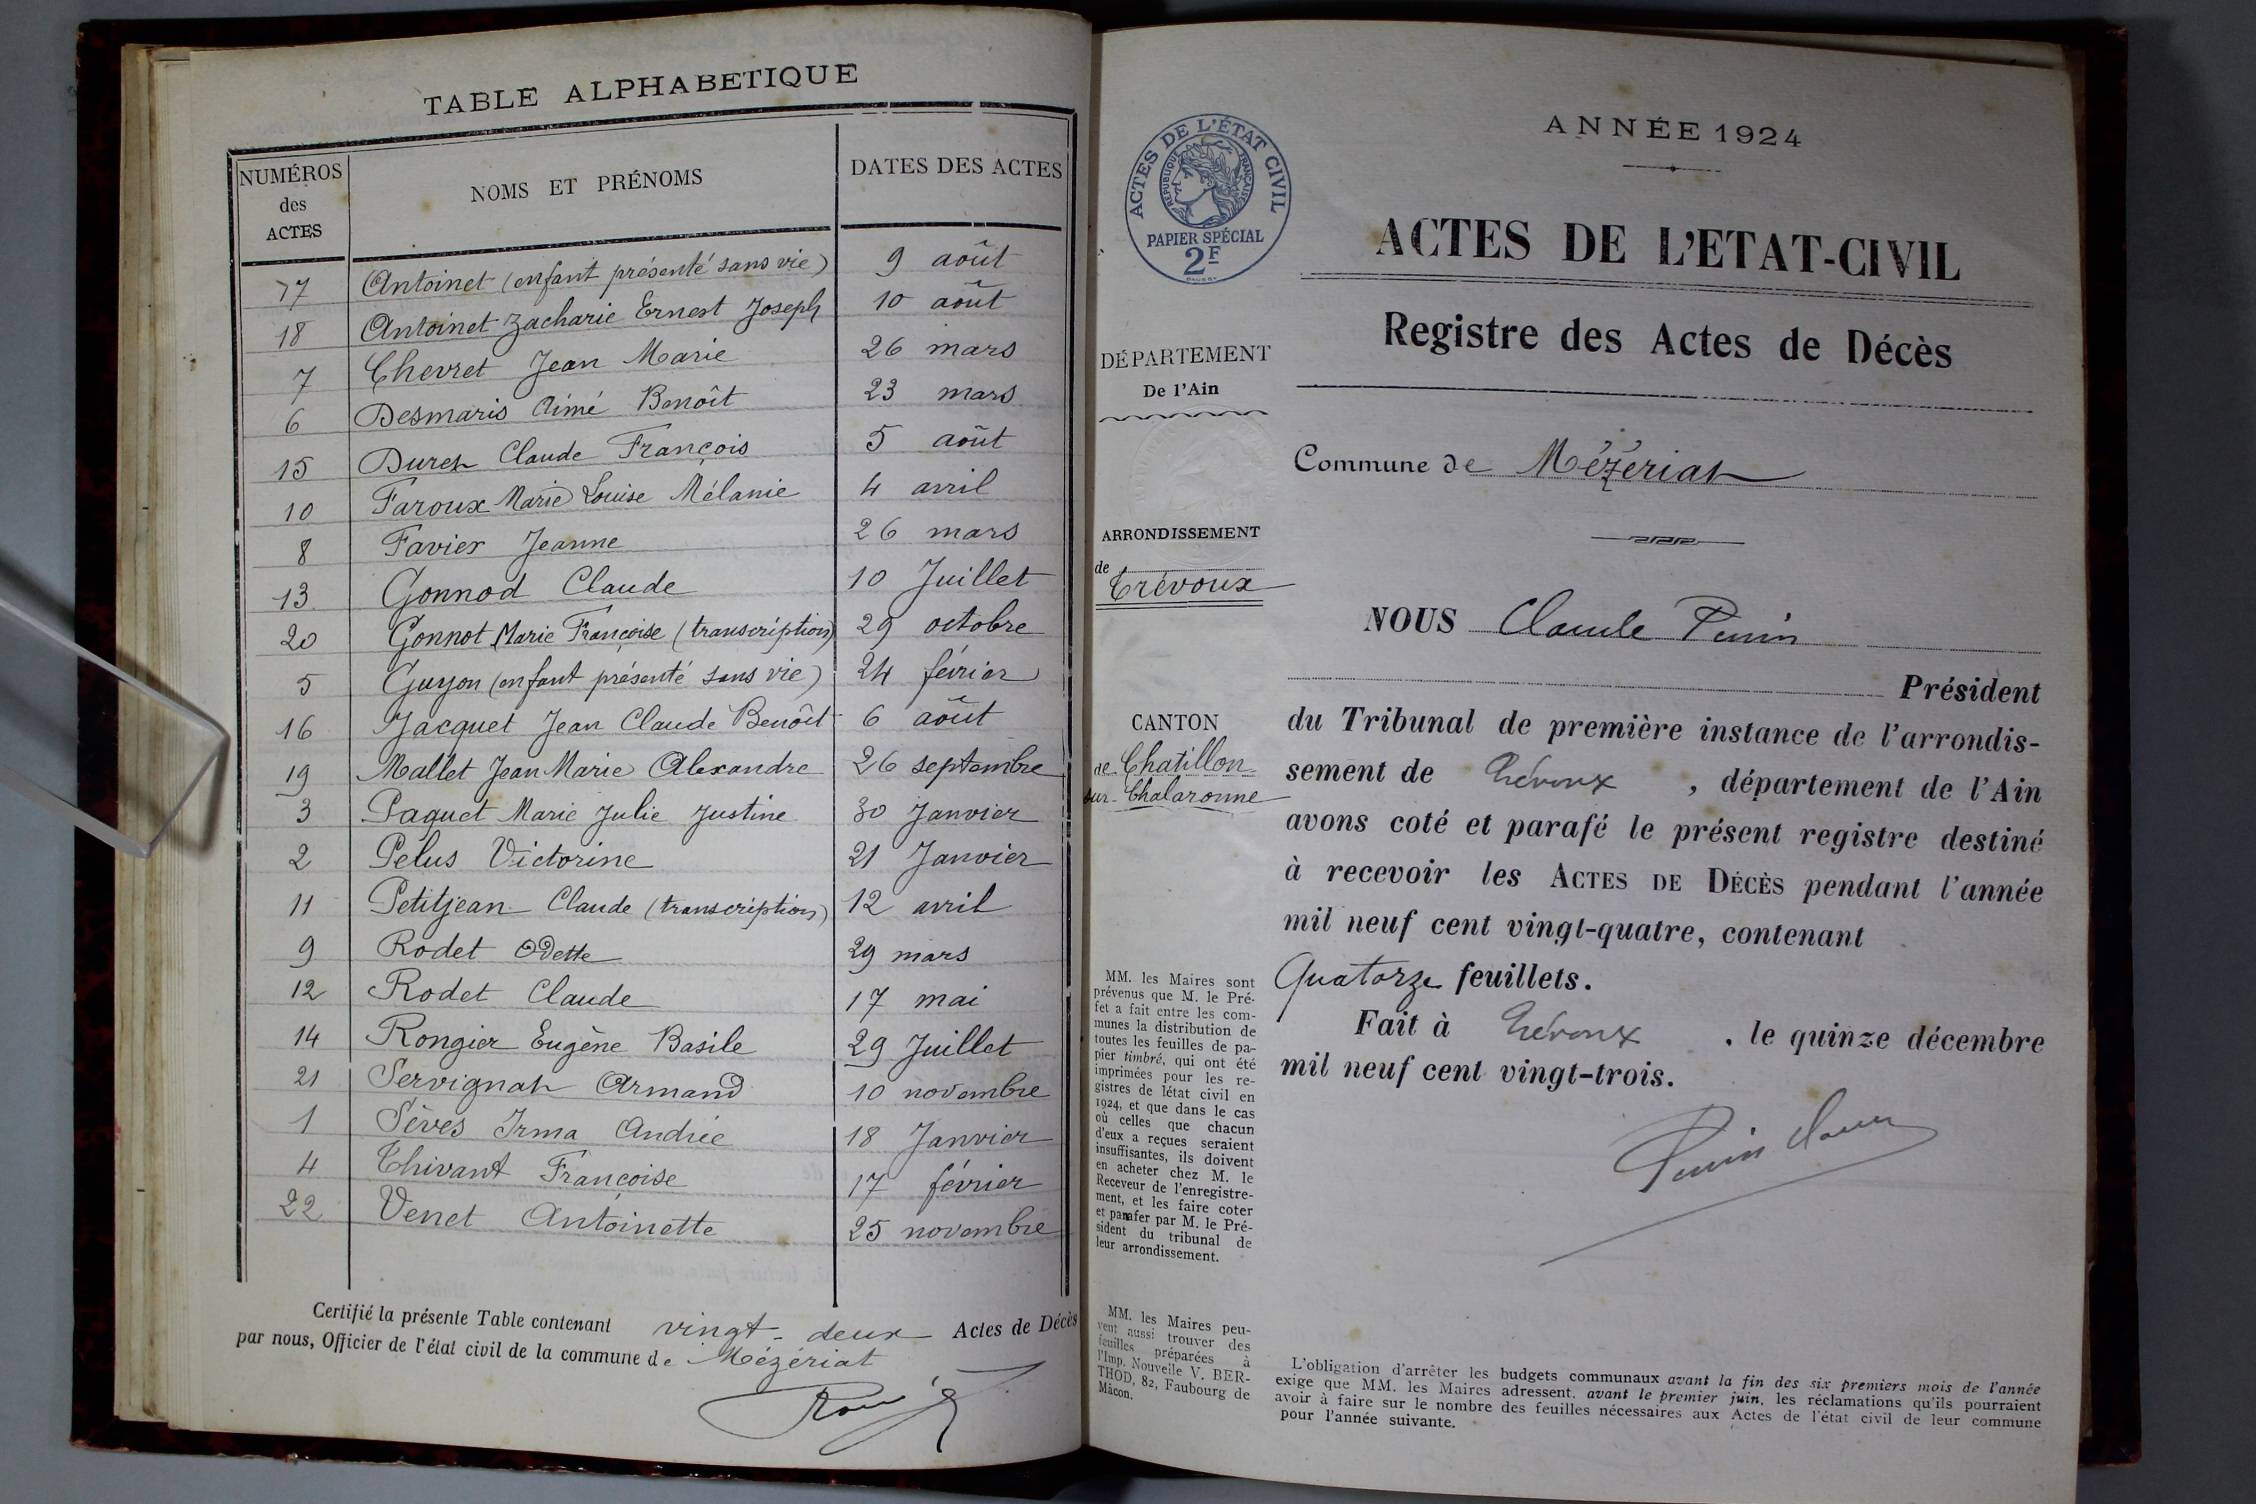 TABLE ALPHABETIQUE
NUMÉROS des ACTES NOMS ET PRÉNOMS DATES DES ACTES
17 Antoinet (enfant présenté sans vie) 9 août
18 Antoinet Zacharie Ernest Joseph 10 août
7 Chevret Jean Marie 26 mars
6 Desmaris Aimé Benoît 23 mars
15 Duret Claude François 5 août
10 Faroux Marie Louise Mélanie 4 avril
8 Favier Jeanne 26 mars
13 Gonnod Claude 10 Juillet
20 Gonnot Marie Françoise (transcription) 29 octobre
5 Guyon (enfant présenté sans vie) 24 février
16 Jacquet Jean Claude Benoît 6 août
19 Mallet Jean Marie Alexandre 26 septembre
3 Paquet Marie Julie Justine 30 Janvier
2 Pelus Victorine 21 Janvier
11 Petitjean Claude (transcription) 12 avril
9 Rodet Odette 29 mars
12 Rodet Claude 17 mai
14 Rongier Eugène Basile 29 Juillet
21 Servignat Armand 10 novembre
1 Sèves Irma Andrée 18 Janvier
4 Thivant Françoise 17 février
22 Venet Antoinette 25 novembre
Certifié la présente Table contenant vingt-deux Actes de Décès
par nous, Officier de l'état civil de la commune de Mézériat
ACTES DE L'ÉTAT CIVIL
RÉPUBLIQUE FRANÇAISE
PAPIER SPÉCIAL
2F
DÉPARTEMENT
De l'Ain
ARRONDISSEMENT
de
Trévoux
CANTON
de Chatillon
sur-Chalaronne
MM. les Maires sont
prévenus que M. le Pré-
fet a fait entre les com-
munes la distribution de
toutes les feuilles de pa-
pier timbré, qui ont été
imprimées pour les re-
gistres de létat civil en
1924, et que dans le cas
où celles que chacun
d'eux a reçues seraient
insuffisantes, ils doivent
en acheter chez M. le
Receveur de l'enregistre-
ment, et les faire coter
et parafer par M. le Pré-
sident du tribunal de
leur arrondissement.
MM. les Maires peu-
vent aussi trouver des
feuilles préparées à
l'Imp. Nouvelle V. BER-
THOD, 82, Faubourg de
Mâcon.
ANNÉE 1924
ACTES DE L'ETAT-CIVIL
Registre des Actes de Décès
Commune de Mézériat
NOUS Claude Perrin
Président
du Tribunal de première instance de l'arrondis-
sement de Trévoux, département de l'Ain
avons coté et parafé le présent registre destiné
à recevoir les ACTES DE DÉCÈS pendant l'année
mil neuf cent vingt-quatre, contenant
Quatorze feuillets.
Fait à Trévoux, le quinze décembre
mil neuf cent vingt-trois.
L'obligation d'arrêter les budgets communaux avant la fin des six premiers mois de l'année
exige que MM. les Maires adressent, avant le premier juin, les réclamations qu'ils pourraient
avoir à faire sur le nombre des feuilles nécessaires aux Actes de l'état civil de leur commune
pour l'année suivante.